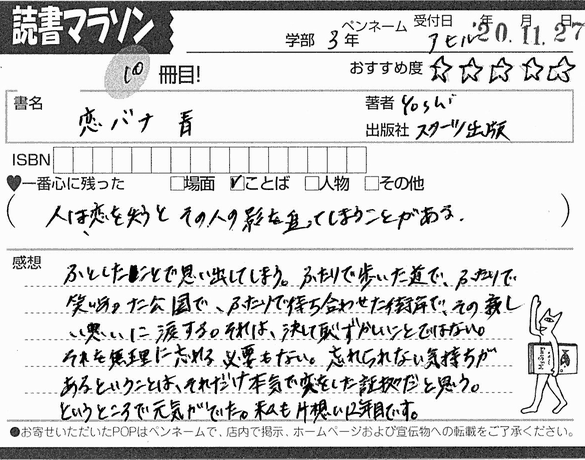 読書マラソン
学部 3年 ペンネーム アヒル 受付日 年 月 日 '20.11.27
10 冊目! おすすめ度 ☆☆☆☆☆
書名 恋バナ 青
著者 Yoshi
出版社 スターツ出版
ISBN
♥一番心に残った □場面 ☑ことば □人物 □その他
(人は恋を失うと その人の影を追ってしまうことがある.)
感想
ふとしたことで思い出してしまう。ふたりで歩いた道で、ふたりで
笑いあった公園で、ふたりで待ち合わせた街角で、その寂し
い思いに涙する。それは、決して恥ずかしいことではない。
それを無理に忘れる必要もない。忘れられない気持ちが
あるということは、それだけ本気で恋をした証拠だと思う。
というところで元気がでた。私も片想い12年目です。
●お寄せいただいたPOPはペンネームで、店内で掲示、ホームページおよび宣伝物への転載をご了承ください。